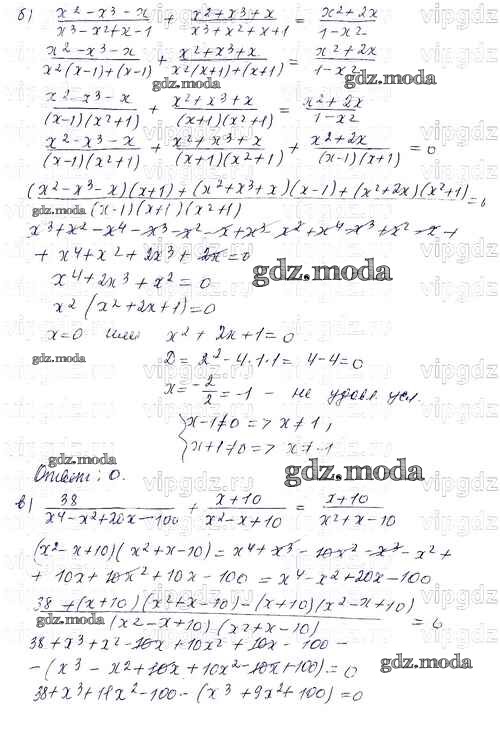 б) (x² - x³ - x)/(x³ - x² + x - 1) + (x² + x³ + x)/(x³ + x² + x + 1) = (x² + 2x)/(1 - x²)
(x² - x³ - x)/(x²(x-1) + (x-1)) + (x² + x³ + x)/(x²(x+1) + (x+1)) = (x² + 2x)/(1 - x²)
gdz.moda
(x² - x³ - x)/((x-1)(x²+1)) + (x² + x³ + x)/((x+1)(x²+1)) = (x² + 2x)/(1 - x²)
(x² - x³ - x)/((x-1)(x²+1)) + (x² + x³ + x)/((x+1)(x²+1)) + (x² + 2x)/((x-1)(x+1)) = 0
((x² - x³ - x)(x+1) + (x² + x³ + x)(x-1) + (x² + 2x)(x²+1))/((x-1)(x+1)(x²+1)) = 0
gdz.moda
x³ + x² - x⁴ - x³ - x² - x + x³ - x² + x⁴ - x³ + x² - x +
+ x⁴ + x² + 2x³ + 2x = 0
x⁴ + 2x³ + x² = 0
gdz.moda
x²(x² + 2x + 1) = 0
x = 0 или x² + 2x + 1 = 0
gdz.moda
D = 2² - 4·1·1 = 4 - 4 = 0
x = -2/2 = -1 - не удовл. усл.
{ x - 1 ≠ 0 => x ≠ 1,
x + 1 ≠ 0 => x ≠ -1
gdz.moda
Ответ: 0.
gdz.moda
в) 38/(x⁴ - x² + 20x - 100) + (x+10)/(x² - x + 10) = (x+10)/(x² + x - 10)
(x² - x + 10)(x² + x - 10) = x⁴ + x³ - 10x² - x³ - x² +
+ 10x + 10x² + 10x - 100 = x⁴ - x² + 20x - 100
(38 + (x+10)(x² + x - 10) - (x+10)(x² - x + 10))/((x² - x + 10)(x² + x - 10)) = 0
38 + x³ + x² - 10x + 10x² + 10x - 100 -
- (x³ - x² + 10x + 10x² - 10x + 100) = 0
gdz.moda
38 + x³ + 11x² - 100 - (x³ + 9x² + 100) = 0